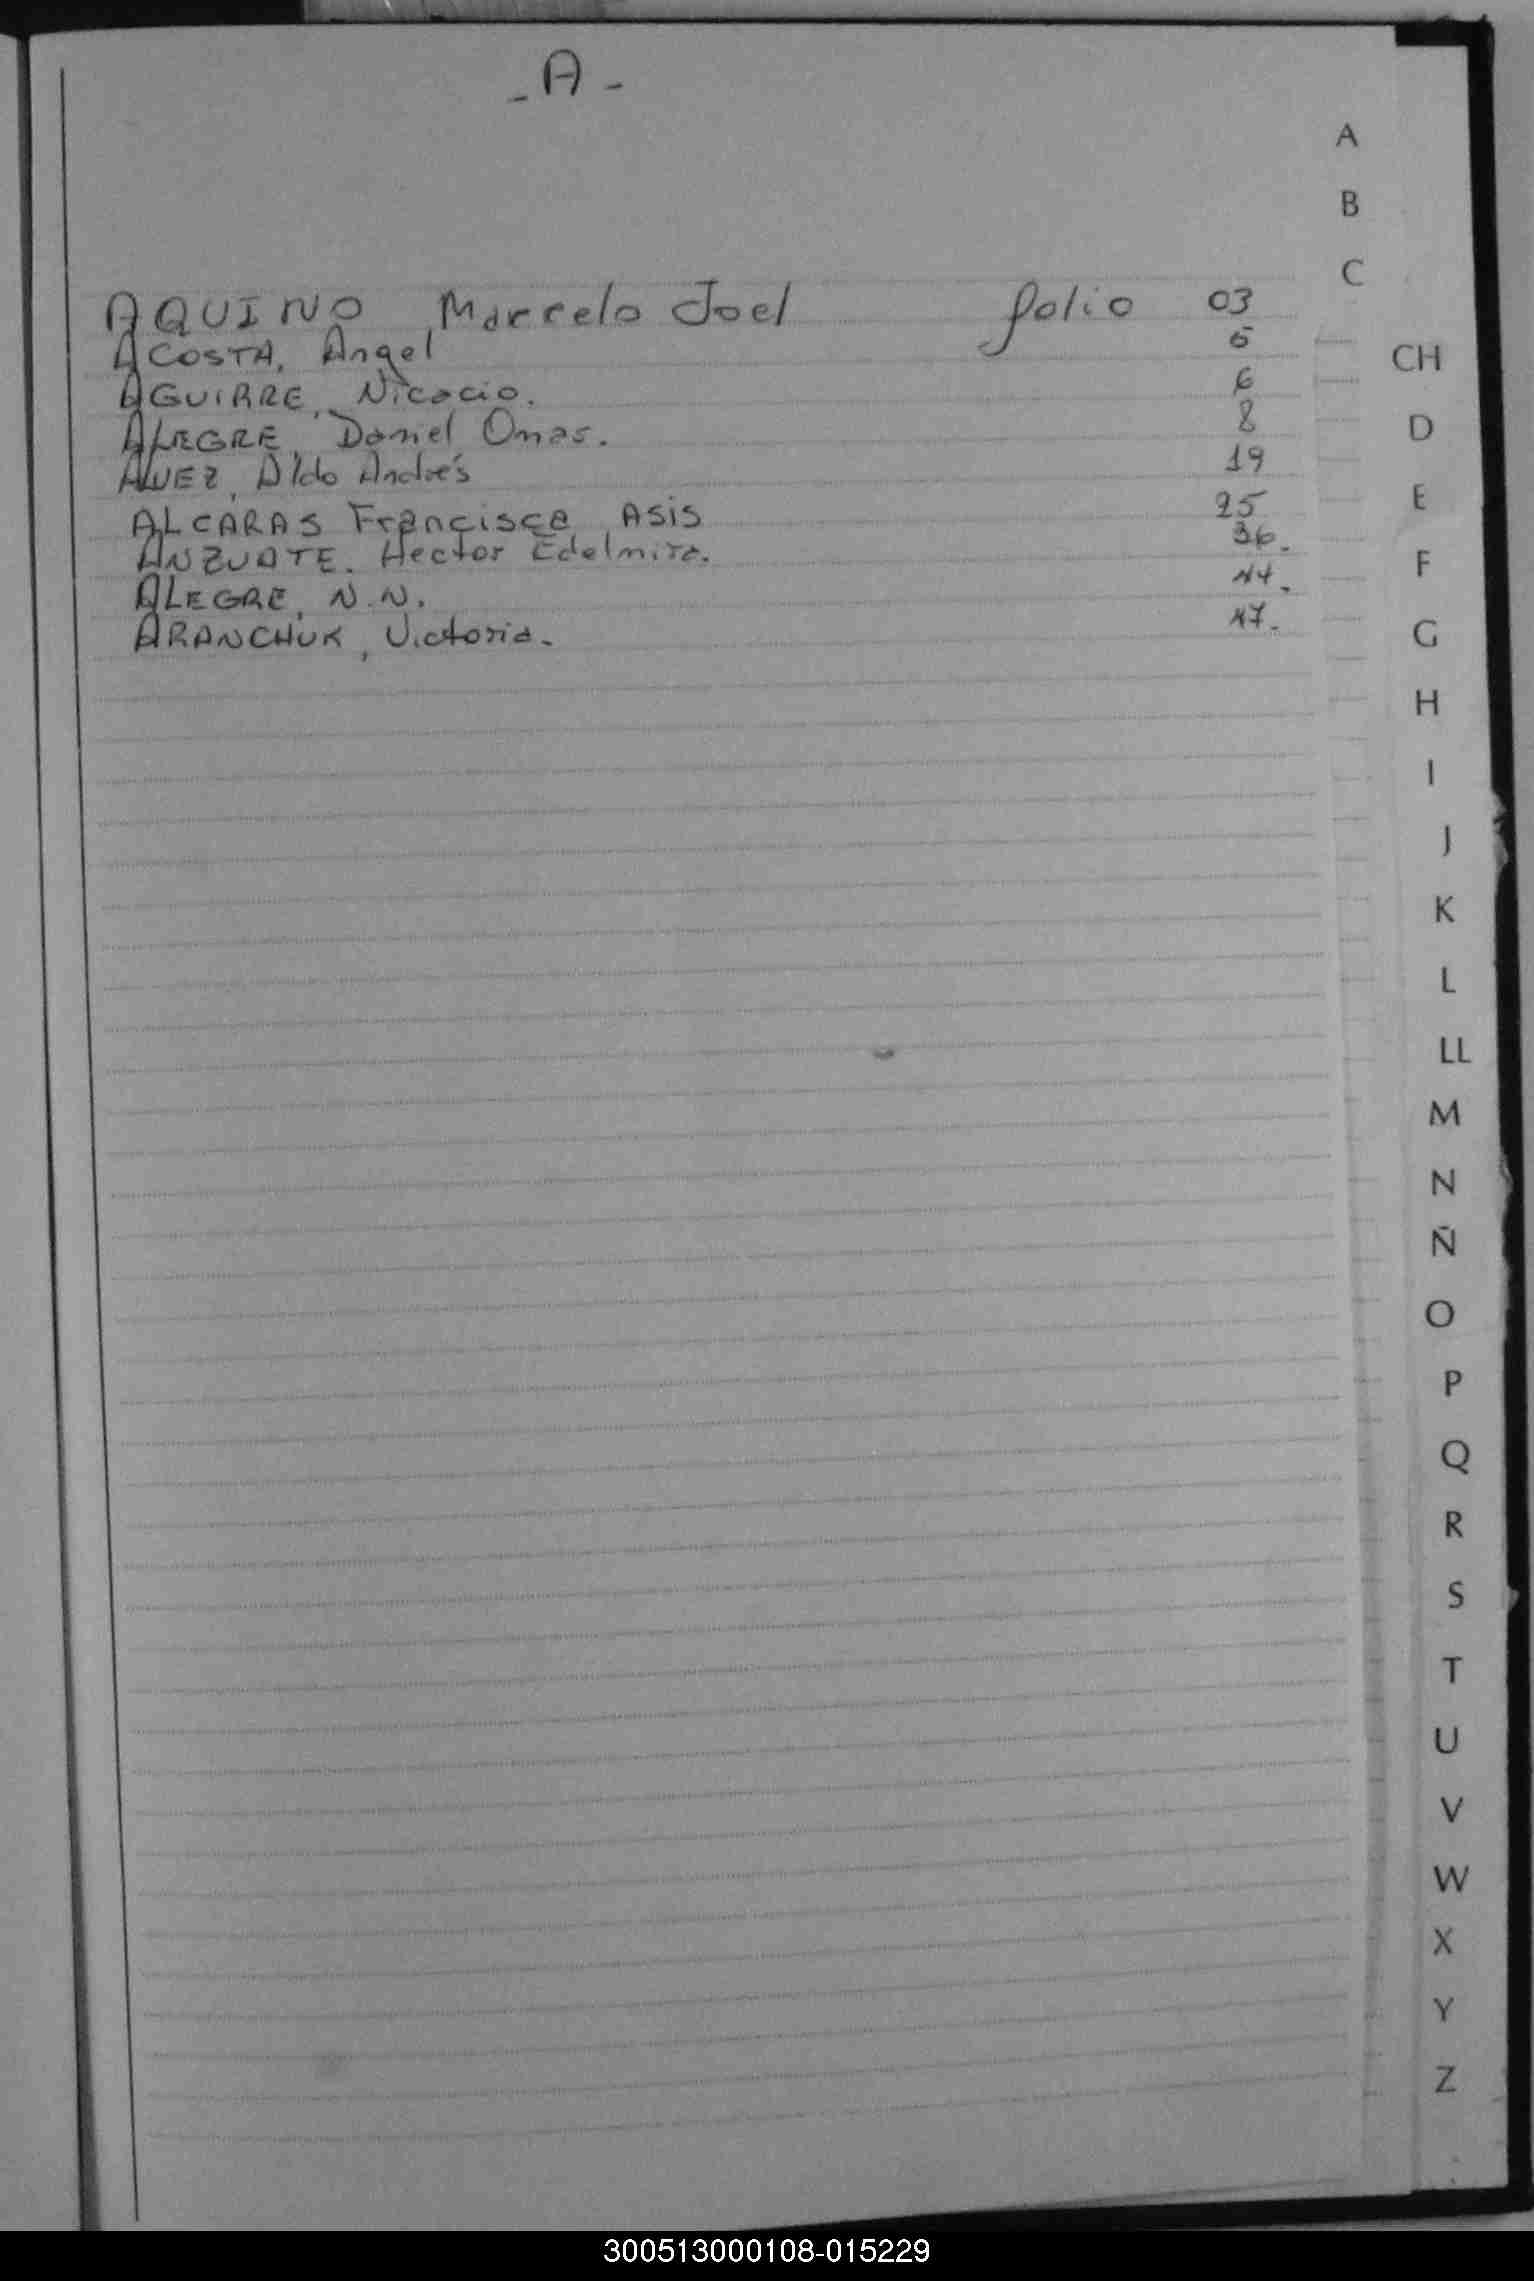 - A -
AQUINO, Marcelo Joel folio 03
ACOSTA, Angel 5
AGUIRRE, Nicacio. 6
ALEGRE, Daniel Omar. 8
ALVEZ, Aldo Andrés 19
ALCARAS Francisca ASIS 25
ANZUATE. Hector Edelmira. 36.
ALEGRE, N.N. 44.
ARANCHUK, Victoria. 47.
A
B
C
CH
D
E
F
G
H
I
J
K
L
LL
M
N
Ñ
O
P
Q
R
S
T
U
V
W
X
Y
Z
300513000108-015229